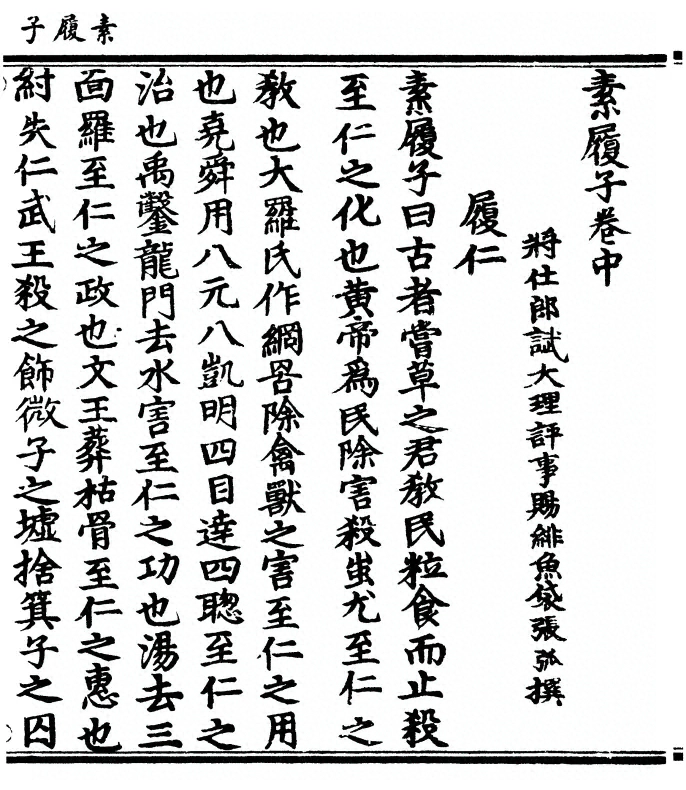 素履子
素履子卷中
將仕郎試大理評事賜緋魚袋張弧撰
履仁
素履子曰古者嘗草之君教民粒食而止殺
至仁之化也黃帝爲民除害殺蚩尤至仁之
教也大羅氏作網罟除禽獸之害至仁之用
也堯舜用八元八凱明四目達四聦至仁之
治也禹鑿龍門去水害至仁之功也湯去三
面羅至仁之政也文王葬枯骨至仁之惠也
紂失仁武王殺之飾微子之墟捨箕子之囚